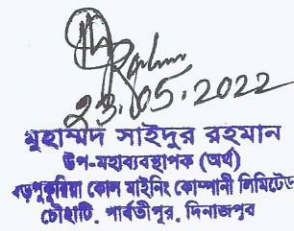 23.05.2022
মুহাম্মদ সাইদুর রহমান
উপ-মহাব্যবস্থাপক (অর্থ)
বড়পুকুরিয়া কোল মাইনিং কোম্পানী লিমিটেড
চৌহাটি, পার্বতীপুর, দিনাজপুর